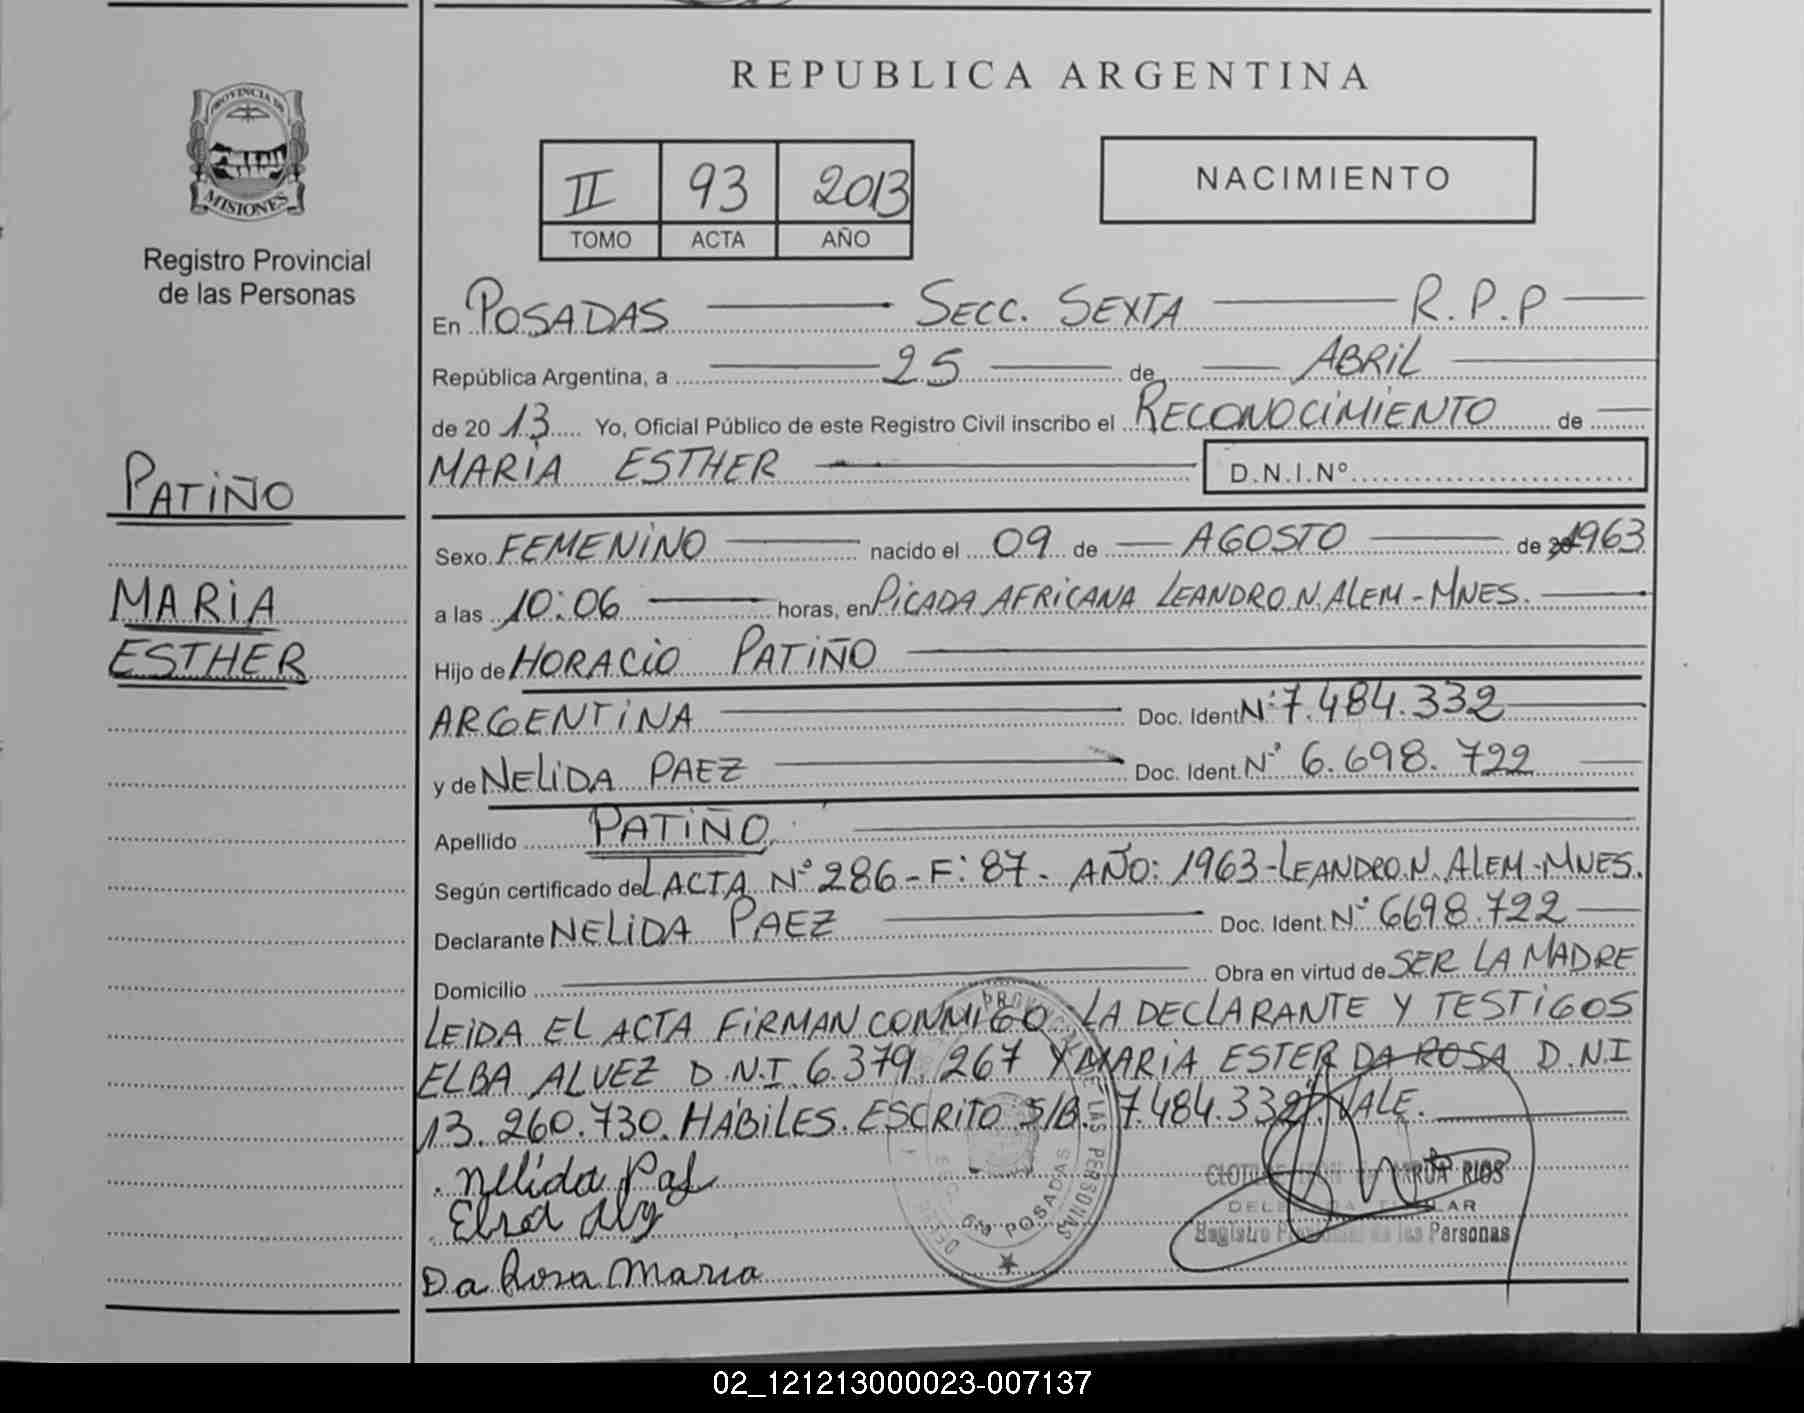 REPUBLICA ARGENTINA
PROVINCIA DE
MISIONES
Registro Provincial
de las Personas
II 93 2013
TOMO ACTA AÑO
NACIMIENTO
En POSADAS SECC. SEXTA R.P.P
República Argentina, a 25 de ABRIL
de 2013 Yo, Oficial Público de este Registro Civil inscribo el RECONOCIMIENTO de
MARIA ESTHER D.N.I.Nº
PATIÑO
MARIA
ESTHER
Sexo FEMENINO nacido el 09 de AGOSTO de 1963
a las 10:06 horas, en PICADA AFRICANA LEANDRO N. ALEM - MNES.
Hijo de HORACIO PATIÑO
ARGENTINA Doc. Ident Nº 7.484.332
y de NELIDA PAEZ Doc. Ident. Nº 6.698.722
Apellido PATIÑO
Según certificado del ACTA Nº 286 - F: 87 - AÑO: 1963 - LEANDRO N. ALEM - MNES.
Declarante NELIDA PAEZ Doc. Ident. Nº 6698.722
Domicilio Obra en virtud de SER LA MADRE
LEIDA EL ACTA FIRMAN CONMIGO LA DECLARANTE Y TESTIGOS
ELBA ALVEZ D.N.I 6.379.267 Y MARIA ESTER DA ROSA D.N.I
13.260.730. HÁBILES. ESCRITO S/B. 7.484.332 VALE.
Nelida
Da Rosa Maria
RIOS
Registro de las Personas
PROVINCIAL DE LAS PERSONAS
POSADAS
02_121213000023-007137